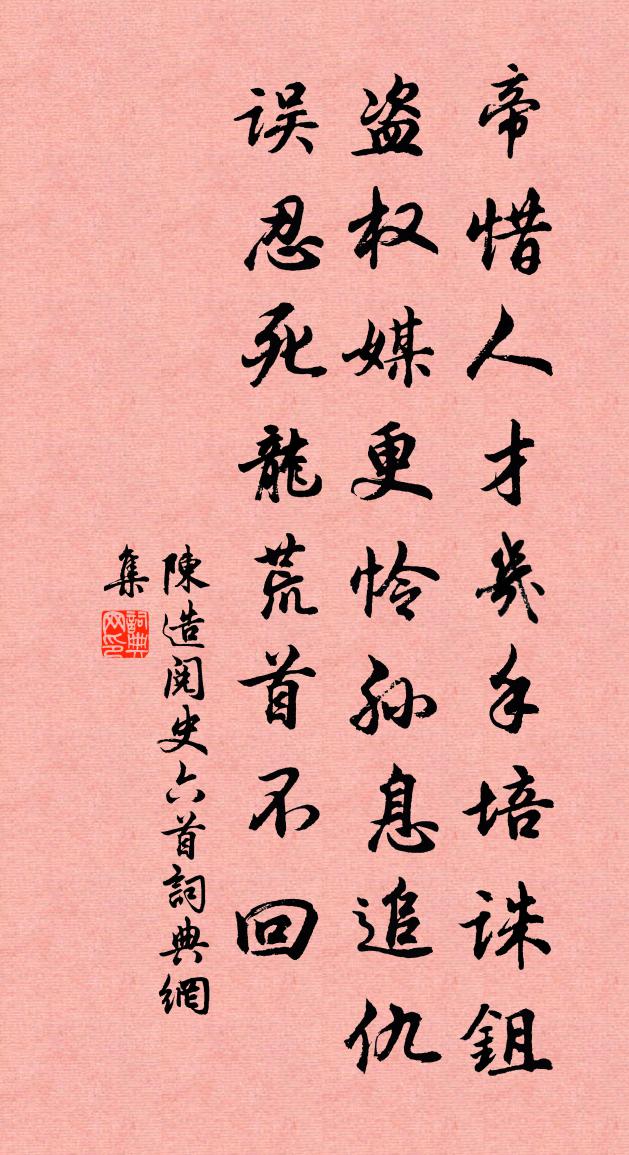 帝惜人才几手培诛鉏
盗权媒更怜孙息追仇
误忍死龍荒首不回
陳造阅史六首詞典網
集
詞典网印